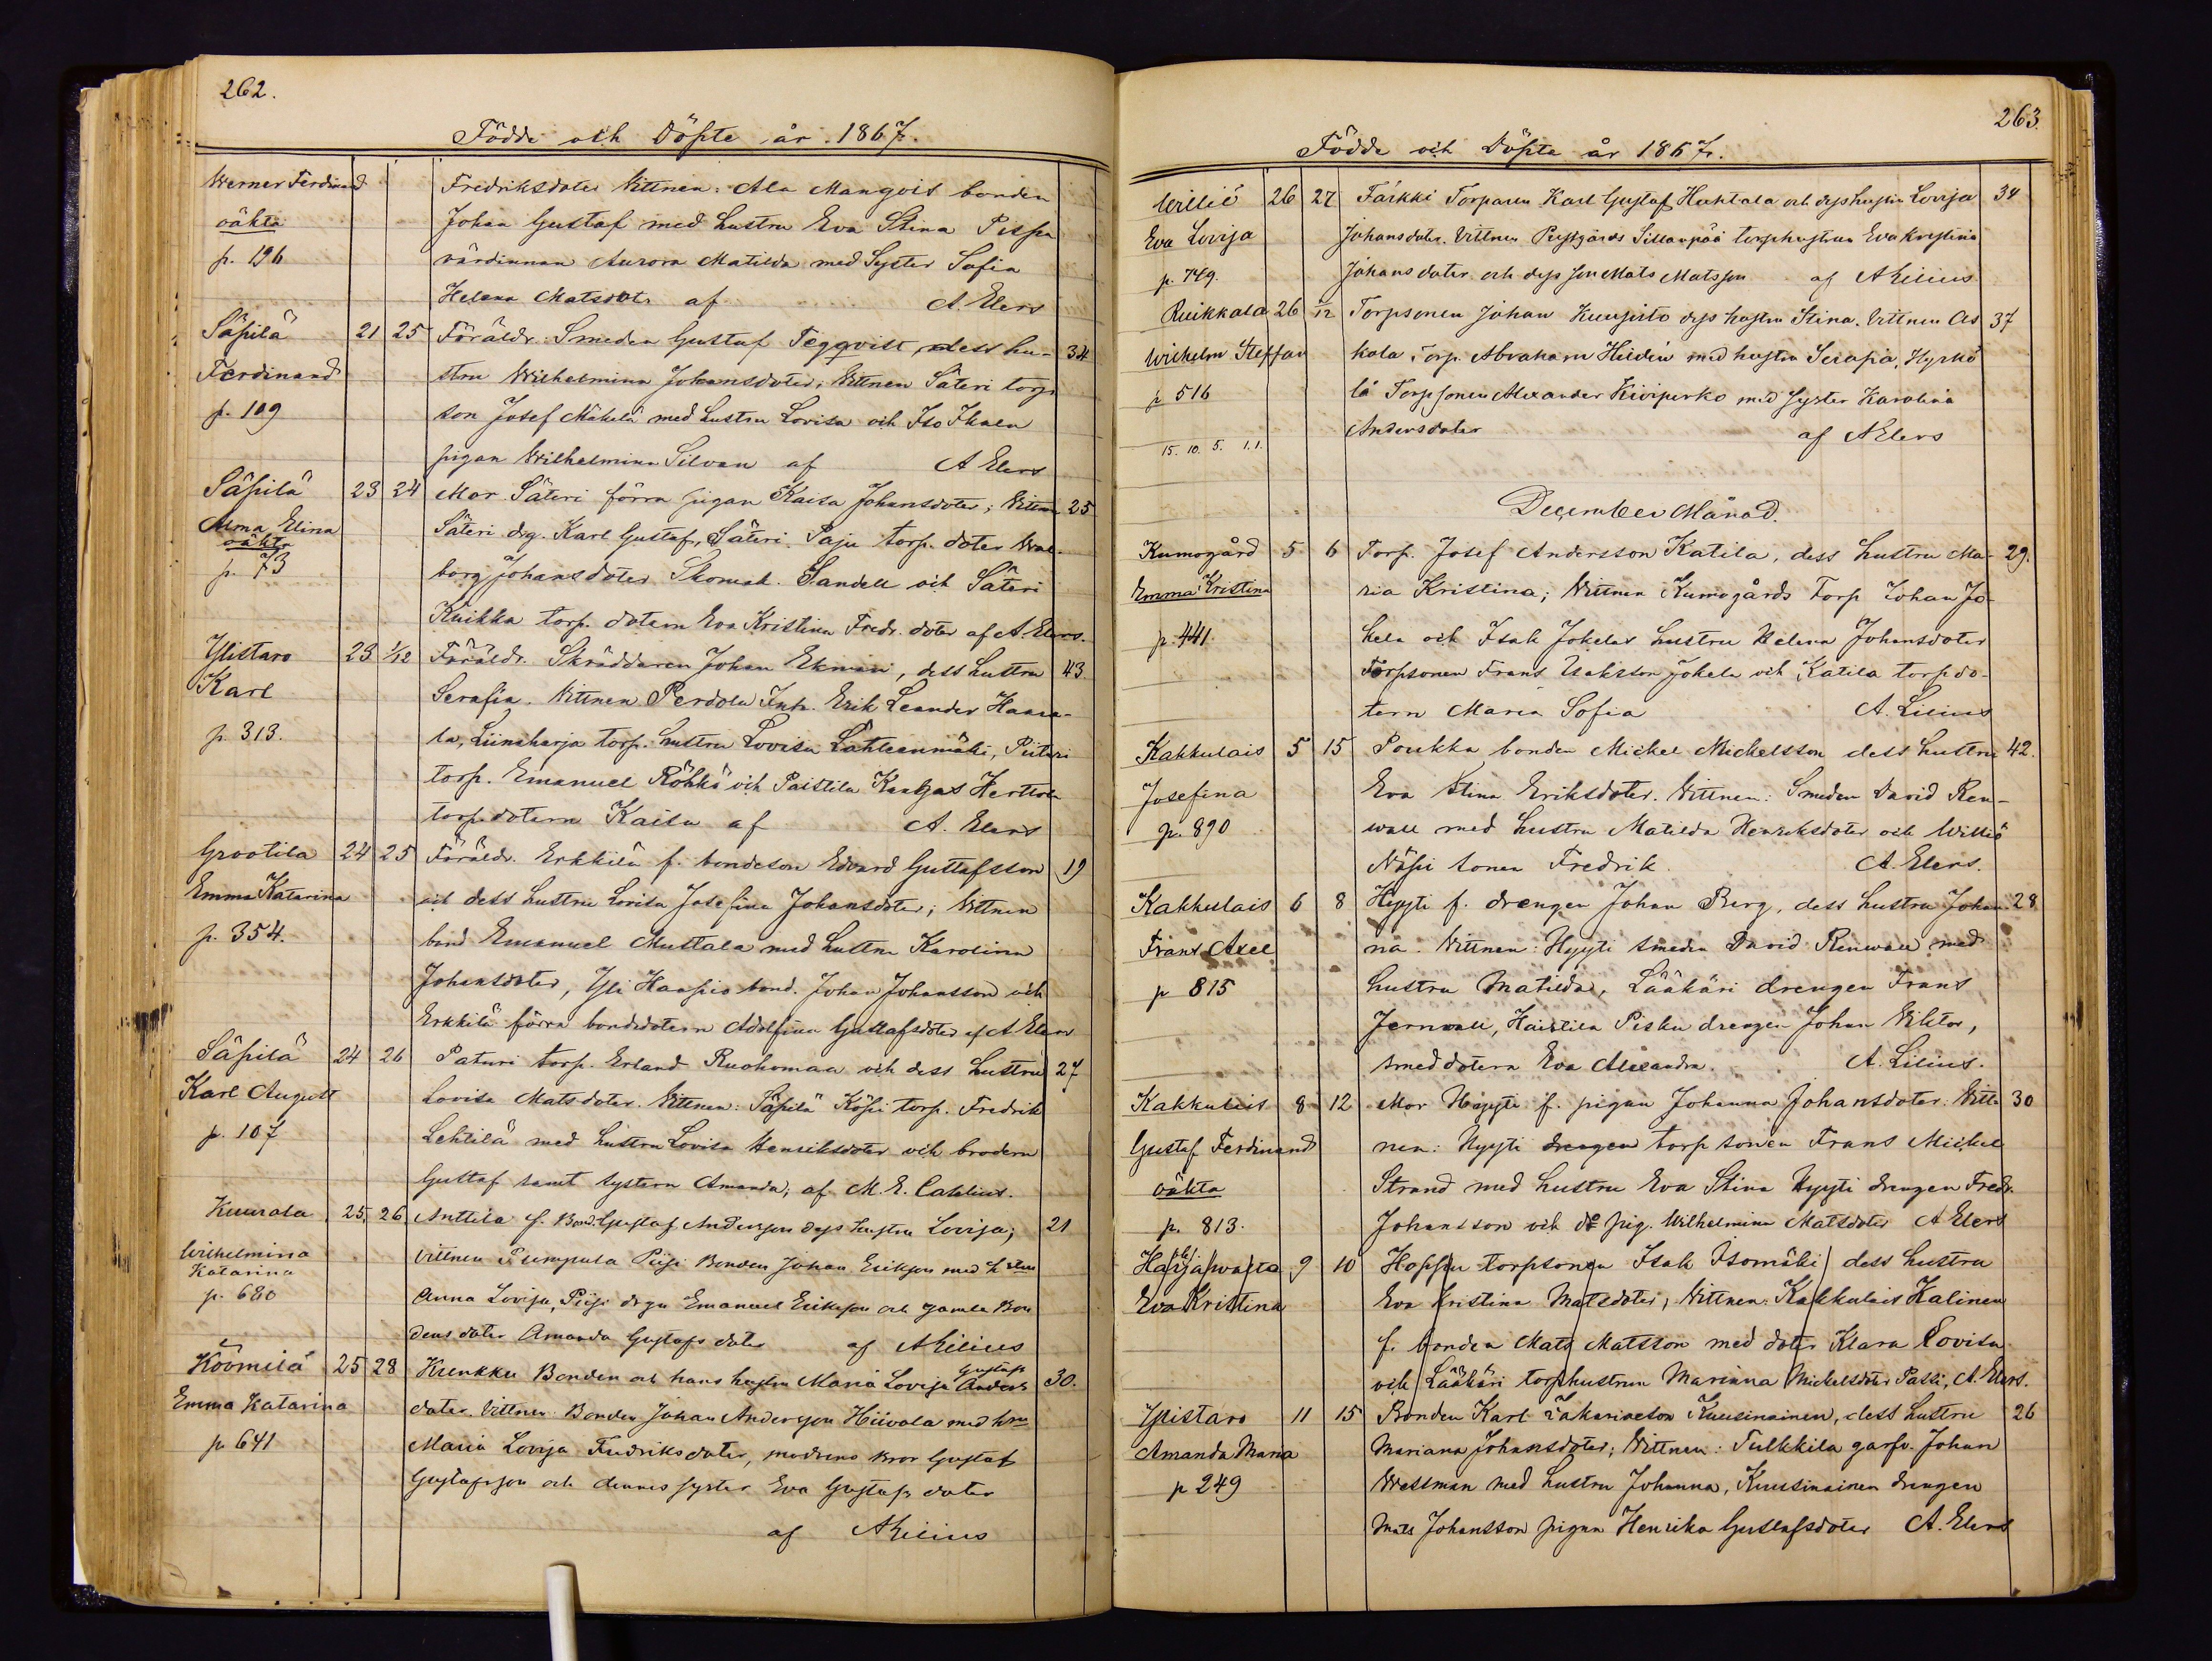 262.
Födde och Döpte år 1867.
Werner Ferdinand Fredriksdoter Vittnen: Ala Mangois bonden
oäkta Johan Gustaf med hustru Eva Stina Pispa
p. 196 värdinnan Aurora Matilda med Syster Sofia
Helena Matsdotr af A. Elers
Säpilä 21 25 Föräldr. Smeden Gustaf Tegqvist, dess hu- 34
Ferdinand stru Wilhelmina Johansdoter; Vittnen Säteri torp.
p. 109 son Josef Mäkelä med hustru Lovisa och Iso
pigan Wilhelmina Silvan af A Elers
Säpilä 23 24 Mor Säteri förra pigan Kaisa Johansdoter; Vittnen 25
Alma Elina Säteri drg. Karl Gustaf, Säteri Paju torp. doter Wal-
oäkta
p. 73 borg Johansdoter Skomak. Sandell och Säteri
Kuikka torp. dotern Eva Kristina Fredr. doter af A. Elers.
Ylistaro 23 1/12 Föräldr. Skräddaren Johan Ekman, dess hustru 43
Karl Serafia. Vittnen Perdola Inh. Erik Leander Haara-
p. 313. la, Liinaharja torp. hustru Lovisa Lähteenmäki, Piitari
torp. Emanuel Röhkä och Paistila Kangas Herttola
torp. dotern Kaisa af A. Elers
Grootila 24 25 Föräldr. Erkkilä f. bondeson Edvard Gustafsson 19
Emma Katarina och dess hustru Lovisa Josefina Johansdoter; Vittnen
p. 354. bond Emanuel Mustala med hustru Karolina
Johansdoter, Yli Haapio bond. Johan Johansson och
Erkkilä förra bondedotern Adolfina Gustafsdoter af A Elers
Säpilä 24 26 Paturi torp. Erland Ruohomaa och dess hustru 27
Karl August Lovisa Matsdoter. Vittnen: Säpilä Köpi torp. Fredrik
p. 107 Lehtilä med hustru Lovisa Henriksdoter och brodern
Gustaf samt systern Amanda; af M. E. Cahlius.
Kuurala 25 26 Anttila f. Bond. Gustaf Andersson dess hustru Lovisa; 21
Wilhelmina Vittnen Piimpula Piisi Bonden Johan Eriksson med hstru
Katarina
p. 680 Anna Lovisa, Piisi drgn Emanuel Eriksson och gamla Bon
dens doter Amanda Gustafs doter af A Lilius
Köömilä 25 28 Kunkku Bonden och hans hustru Maria Lovisa Anders 30.
Gustafs
Emma Katarina doter. Vittnen: Bonden Johan Andersson Hiivola med hru
p 641 Maria Lovisa Fredriks doter, modrens bror Gustaf
Gustafsson och dennes syster Eva Gustafs doter
af A Lilius
263
Födde och Döpte år 1867.
Villiö 26 27 Färkki Torparen Karl Gustaf Huhtala och dess hustru Lovisa 34
Eva Lovisa Johansdoter. Vittnen Prestgårds Sillanpää torphustrun Eva Kristina
p. 749. Johans doter och dess son Mats Matsson af A Lilius
Ruikkala 26 1/12 Torpsonen Johan Kuusisto dess hustru Stina. Vittnen As 37
Wilhelm Steffan kola Torp. Abraham Hildén med hustru Serafia, Hyrkö
p 516 lä Torpsonen Alexander Kiviperko med syster Karolina
Andersdoter af A Elers
15. 10. 5. 1.1.
December Månad.
Kumogård 5 6 Torp. Josef Andersson Katila, dess hustru Ma- 29.
Emma Kristina ria Kristina; Vittnen Kumogårds Torp Johan Jo-
p. 441. kela och Isak Jokelas hustru Helena Johansdoter
Torpsonen Frans Isaksson Jokela och Katila torpdo-
tern Maria Sofia A. Lilius
Kakkulais 5 15 Poukka bonden Mickel Mickelsson dess hustru 42.
Josefina Eva Stina Eriksdoter. Vittnen: Smeden David Ren-
p. 890 wall med hustru Matilda Henriksdoter och Williö
Näpi sonen Fredrik A. Elers.
Kakkulais 6 8 Hyyti f. drengen Johan Berg, dess hustru Johan- 28
Frans Axel na. Vittnen: Hyyti smeden David Renwall med
p 815 hustru Matilda, Lääkäri drengen Frans
Jernwall, Haistila Pisku drengen Johan Viktor,
smeddotern Eva Alexandra. A. Lilius.
Kakkulais 8 12 Mor Hyyti f. pigan Johanna Johansdoter. Vitt- 30
Gustaf Ferdinand nen: Hyyti drengen torpsonen Frans Mickel
oäkta Strand med hustru Eva Stina Hyyti drengen Fredr.
p. 813. Johansson och do pig. Wilhelmina Matsdoter A Elers
Harjawalta 9 10 Hoppu torpsonen Isak Isomäki dess hustru
Eva Kristina Eva Kristina Matsdoter; Vittnen: Kakkulais Kalinen
f. bonden Mats Matsson med doter Klara Lovisa
och Lääkäri torphustrun Marianna Mickelsdoter Passi, A. Elers.
Ylistaro 11 15 Bonden Karl Zakariasson Kuusinainen, dess hustru 26
Amanda Maria Mariana Johansdoter; Vittnen: Tulkkila garfv. Johan
p 249 Wessman med hustru Johanna, Kuusinainen drengen
Mats Johansson pigan Henrika Gustafsdoter A. Elers